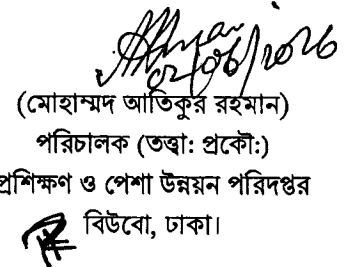 02/06/2026
(মোহাম্মদ আতিকুর রহমান)
পরিচালক (তত্ত্বা: প্রকৌ:)
প্রশিক্ষণ ও পেশা উন্নয়ন পরিদপ্তর
বিউবো, ঢাকা।